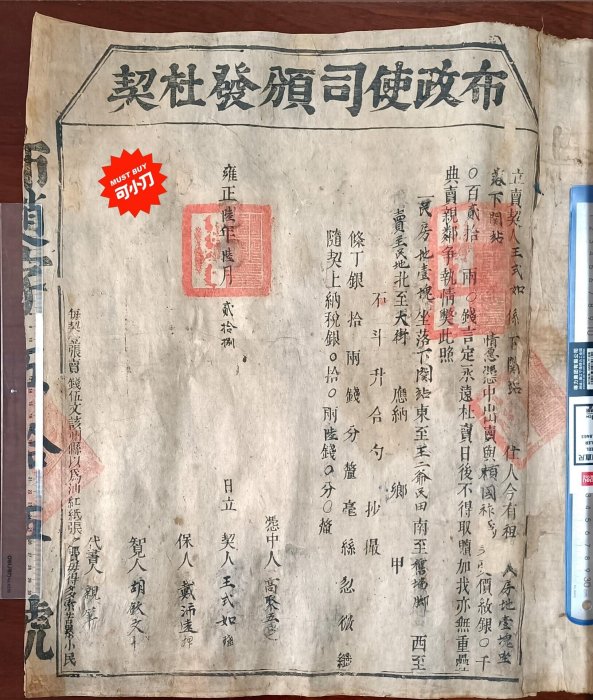 布政使司頒發杜契
立賣契人王式如係下関站 住人今有祖 房地壹塊坐
落下関站 情愿憑中出賣與賴國 價紋銀〇千
〇百貳拾 兩〇錢言定永遠杜賣日後不得取贖加找亦無重疊
典賣親鄰爭執情獘此照
一民房地壹塊坐落下関站東至王二爺民田南至舊墻脚 西至
賣主民地北至大街 應納 鄉 甲
石斗升合勺 抄撮
條丁銀拾兩錢分釐毫絲忽微纖
隨契上納稅銀〇拾〇兩陸錢〇分〇釐
雍正陸年陸月 貳拾捌 日立
憑中人
契人王式如
保人戴沛遠
買人胡
代書人親筆
每契一張賣錢伍文該州縣以爲油紅紙張
小民
號
MUST BUY
可小刀